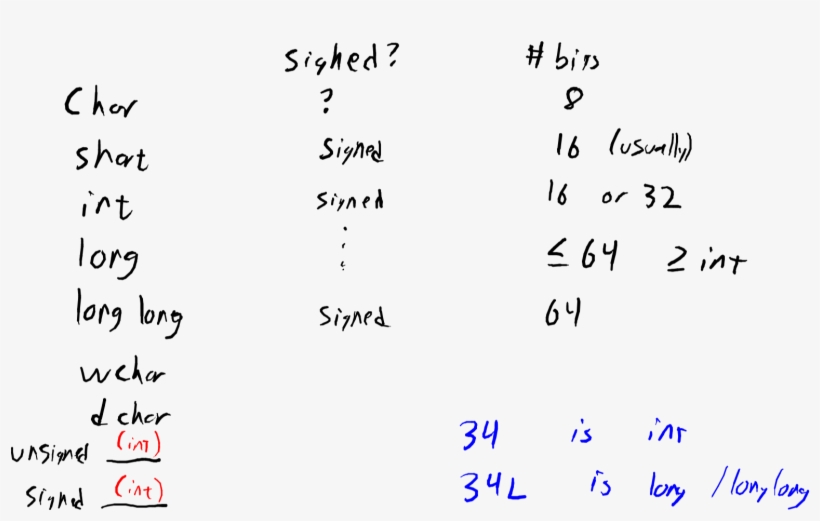 Signed? # bits
Char ? 8
short Signed 16 (usually)
int signed 16 or 32
long ⋮ ≤ 64 ≥ int
long long signed 64
wchar
dchar
unsigned (int)
signed (int)
34 is int
34L is long / long long